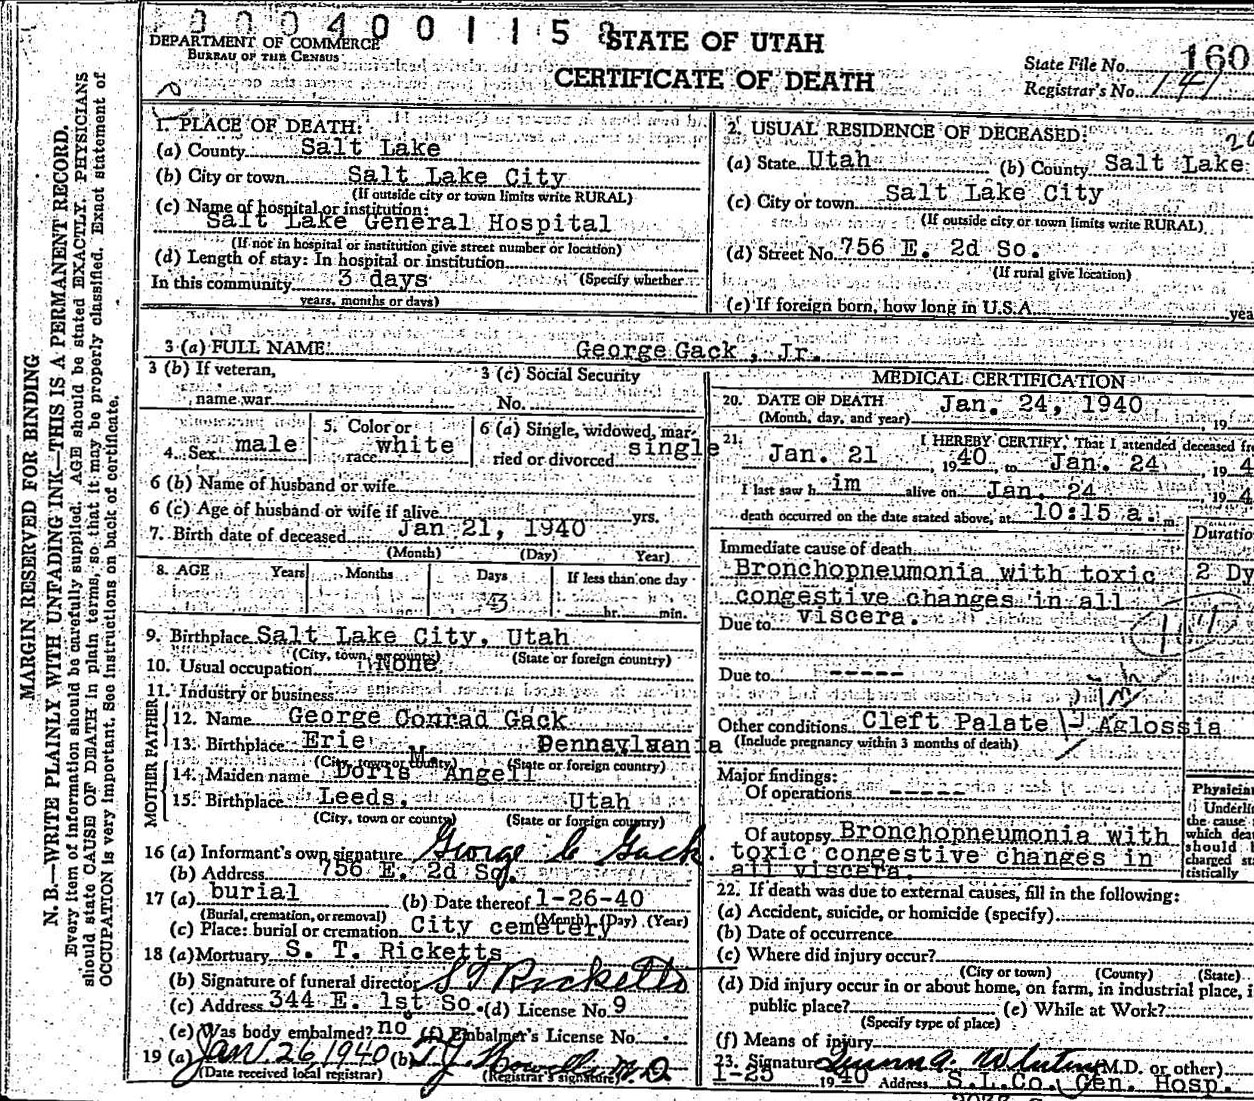 0004001158
DEPARTMENT OF COMMERCE
BUREAU OF THE CENSUS
STATE OF UTAH
CERTIFICATE OF DEATH
State File No. 160
Registrar's No. 141
MARGIN RESERVED FOR BINDING
N. B.—WRITE PLAINLY WITH UNFADING INK—THIS IS A PERMANENT RECORD.
Every item of information should be carefully supplied. AGE should be stated EXACTLY. PHYSICIANS
should state CAUSE OF DEATH in plain terms, so that it may be properly classified. Exact statement of
OCCUPATION is very important. See instructions on back of certificate.
1. PLACE OF DEATH:
(a) County Salt Lake
(b) City or town Salt Lake City
(If outside city or town limits write RURAL)
(c) Name of hospital or institution:
Salt Lake General Hospital
(If not in hospital or institution give street number or location)
(d) Length of stay: In hospital or institution
(Specify whether
In this community 3 days
years, months or days)
2. USUAL RESIDENCE OF DECEASED:
(a) State Utah (b) County Salt Lake
(c) City or town Salt Lake City
(If outside city or town limits write RURAL)
(d) Street No. 756 E. 2d So.
(If rural give location)
(e) If foreign born, how long in U.S.A. yea
3 (a) FULL NAME George Gack, Jr.
3 (b) If veteran,
name war
3 (c) Social Security
No.
4. Sex male
5. Color or
race white
6 (a) Single, widowed, mar-
ried or divorced single
6 (b) Name of husband or wife
6 (c) Age of husband or wife if alive yrs.
7. Birth date of deceased Jan 21, 1940
(Month) (Day) Year)
8. AGE Years Months Days If less than one day
3 hr. min.
9. Birthplace Salt Lake City, Utah
(City, town, or county) (State or foreign country)
10. Usual occupation None
11. Industry or business
FATHER
12. Name George Conrad Gack
13. Birthplace Erie Pennsylvania
(City, town or county) (State or foreign country)
MOTHER
14. Maiden name Doris M. Angell
15. Birthplace Leeds, Utah
(City, town or county) (State or foreign country)
16 (a) Informant's own signature George C Gack
(b) Address 756 E. 2d So.
17 (a) burial (b) Date thereof 1-26-40
(Burial, cremation, or removal) (Month) (Day) (Year)
(c) Place: burial or cremation City cemetery
18 (a) Mortuary S. T. Ricketts
(b) Signature of funeral director S T Ricketts
(c) Address 344 E. 1st So. (d) License No. 9
(e) Was body embalmed? no (f) Embalmer's License No.
19 (a) Jan. 26 1940 (b) M.D.
(Date received local registrar) (Registrar's signature)
MEDICAL CERTIFICATION
20. DATE OF DEATH Jan. 24, 1940
(Month, day, and year) , 19
21. I HEREBY CERTIFY, That I attended deceased fr
Jan. 21 , 1940, to Jan. 24 , 194
I last saw him alive on Jan. 24 , 194
death occurred on the date stated above, at 10:15 a. m.
Duratio
Immediate cause of death
Bronchopneumonia with toxic 2 Dy
congestive changes in all
Due to viscera.
Due to -----
Other conditions Cleft Palate - Aglossia
(Include pregnancy within 3 months of death)
Major findings:
Of operations -----
Of autopsy Bronchopneumonia with
toxic congestive changes in
all viscera.
Physician
Underli
the cause
which dea
should b
charged st
tistically
22. If death was due to external causes, fill in the following:
(a) Accident, suicide, or homicide (specify)
(b) Date of occurrence
(c) Where did injury occur?
(City or town) (County) (State)
(d) Did injury occur in or about home, on farm, in industrial place, i
public place? (e) While at Work?
(Specify type of place)
(f) Means of injury
23. Signature (M.D. or other)
1-25 1940 Address S.L.Co. Gen. Hosp.